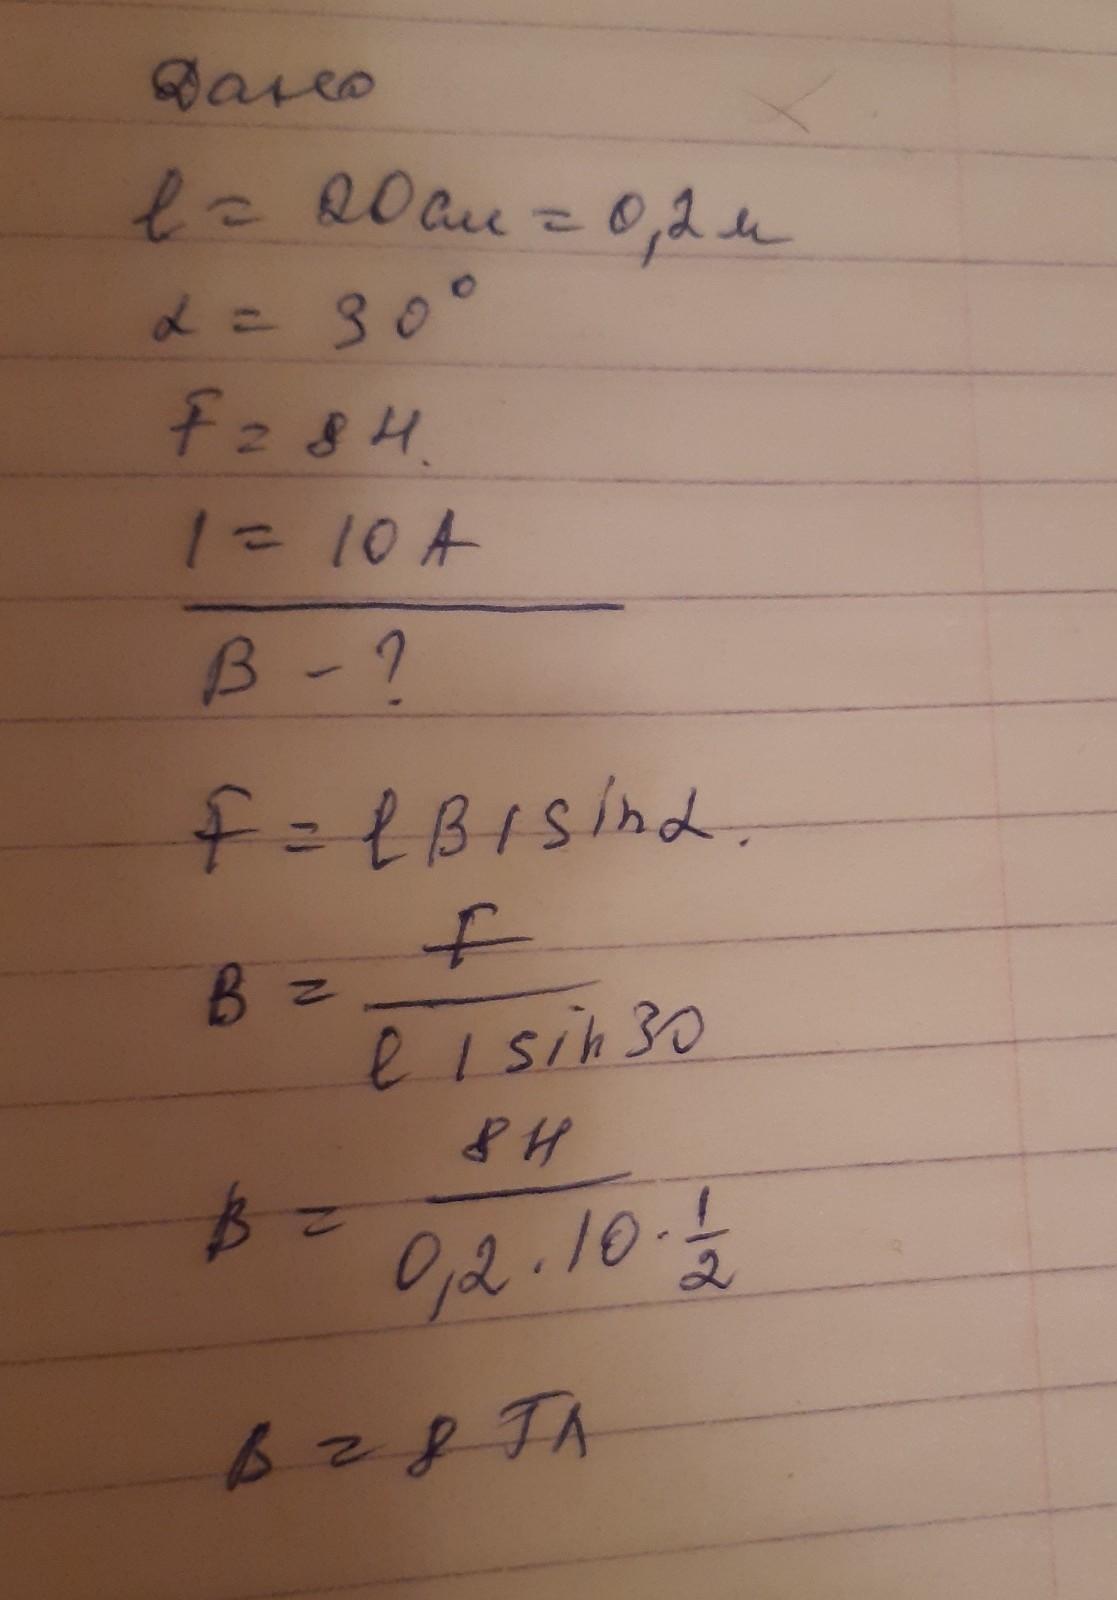 Дано
l = 20 см = 0,2 м
α = 30°
F = 8 Н.
I = 10 А
B - ?
F = l B I sin α.
B = F / l I sin 30
B = 8 Н / 0,2 · 10 · 1/2
B = 8 Тл